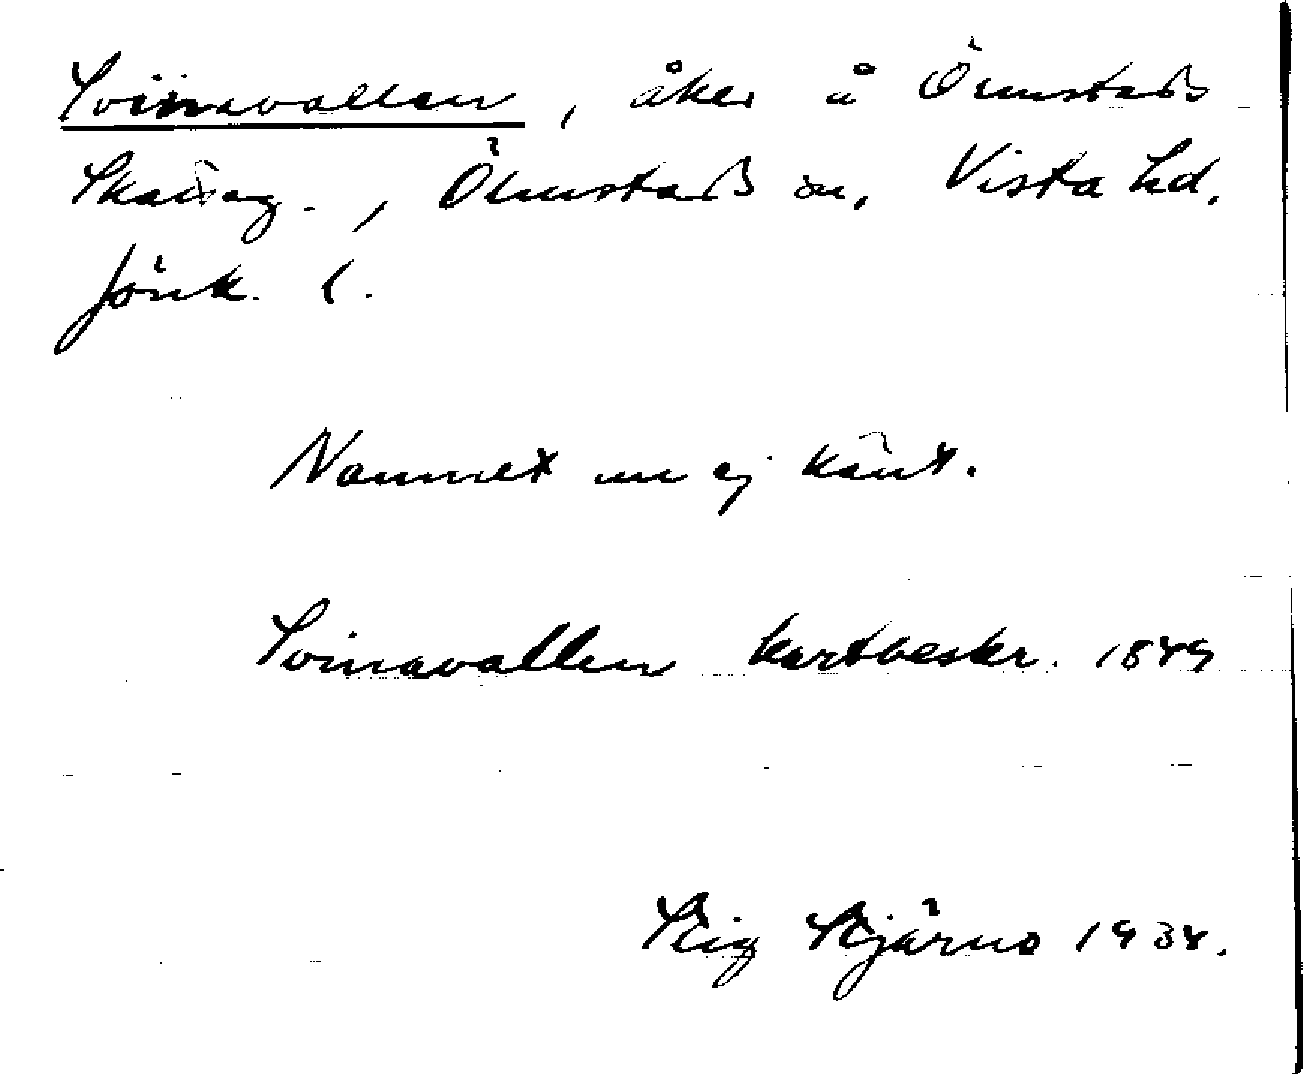 Svinavallen, åker å Ölmstads
Skattag., Ölmstads sn, Vista hd.
Jönk. l.
Namnet nu ej känt.
Svinavallen kartbeskr. 1849
Stig Stjärne 1934.